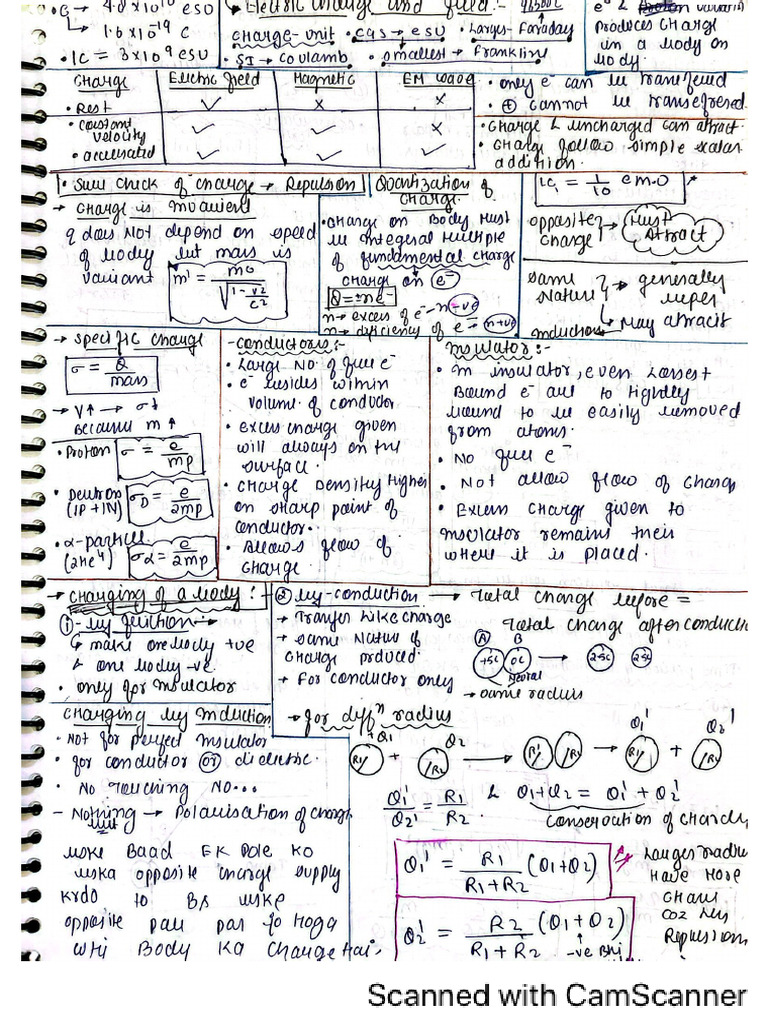 4.8 x 10^10 esu
1.6 x 10^-19 C
1C = 3 x 10^9 esu
Electric charge and field:-
charge-unit
CGS → esu
SI → Coulamb
Larges- Faraday
smallest → Franklins
Produces charge
in a body on
body.
Charge | Electric field | Magnetic | EM wave
• Rest ✓ × ×
• constant velocity ✓ ✓ ×
• accelerated ✓ ✓ ✓
• only e- can be
⊕ cannot be
• charge & uncharged can attract.
• charge follow simple scalar
addition.
• Sure check of charge → Repulsion
→ charge is invarient
q does Not depend on speed
of body but mass is
variant m' = mo / √(1 - v²/c²)
Quantization of
charge.
• charge on Body Must
be integral multiple
of fundamental charge
charge on e-
Q = ± ne-
n → excess of e- -n -ve
n → deficiency of e- → n +ve
1C = 1/10 emu
opposite charge → Must Attract
same Nature → generally repel
→ May attract
induction
→ specific charge
σ = Q / mass
→ V↑ → σ↓
because m↑
• Proton σ = e / mp
• deutron (1P+1N) σD = e / 2mp
• α-particle (2He4) σα = e / 2mp
-conductors:-
• Large NO. of free e-
• e- resides within
volume of conductor
• excess charge given
will always on the
surface.
• charge density higher
on sharp point of
conductor.
• Allows flow of
charge
insulator:-
• in insulator, even
Bound e- are to tightly
bound to be easily removed
from atoms.
• No free e-
• Not allow flow of charge
• Excess charge given to
insulator remains
where it is placed.
→ charging of a body:-
① - by friction
make one body +ve
& one body -ve
• only for insulator
② by-conduction → Total charge before =
Total charge after conduction
→ Transfer like charge
→ same Nature of
charge produced.
→ For conductor only
A B
+5C 0C → 2.5C 2.5C
Neutral
→ same radius
charging by induction
• Not for perfect insulator
• for conductor or dielectric.
• No Touching NO...
- Nothing → Polarisation of charge
but
uske Baad EK Pole KO
uska opposite charge supply
krdo to BS uske
opposite pass jo Hoga
whi Body Ka charge Hai.
→ for diffn radius
Q1 Q2 Q1' Q2'
R1 + R2 R1 R2 → R1 + R2
Q1'/Q2' = R1/R2 & Q1+Q2 = Q1'+Q2'
Conservation of charge
Q1' = R1/(R1+R2) (Q1+Q2)
Q2' = R2/(R1+R2) (Q1+Q2)
-ve
Larger radius
have more
charge
coz less
Repulsion
Scanned with CamScanner